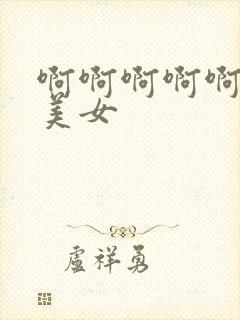 啊啊啊啊啊
美女
盧祥勇